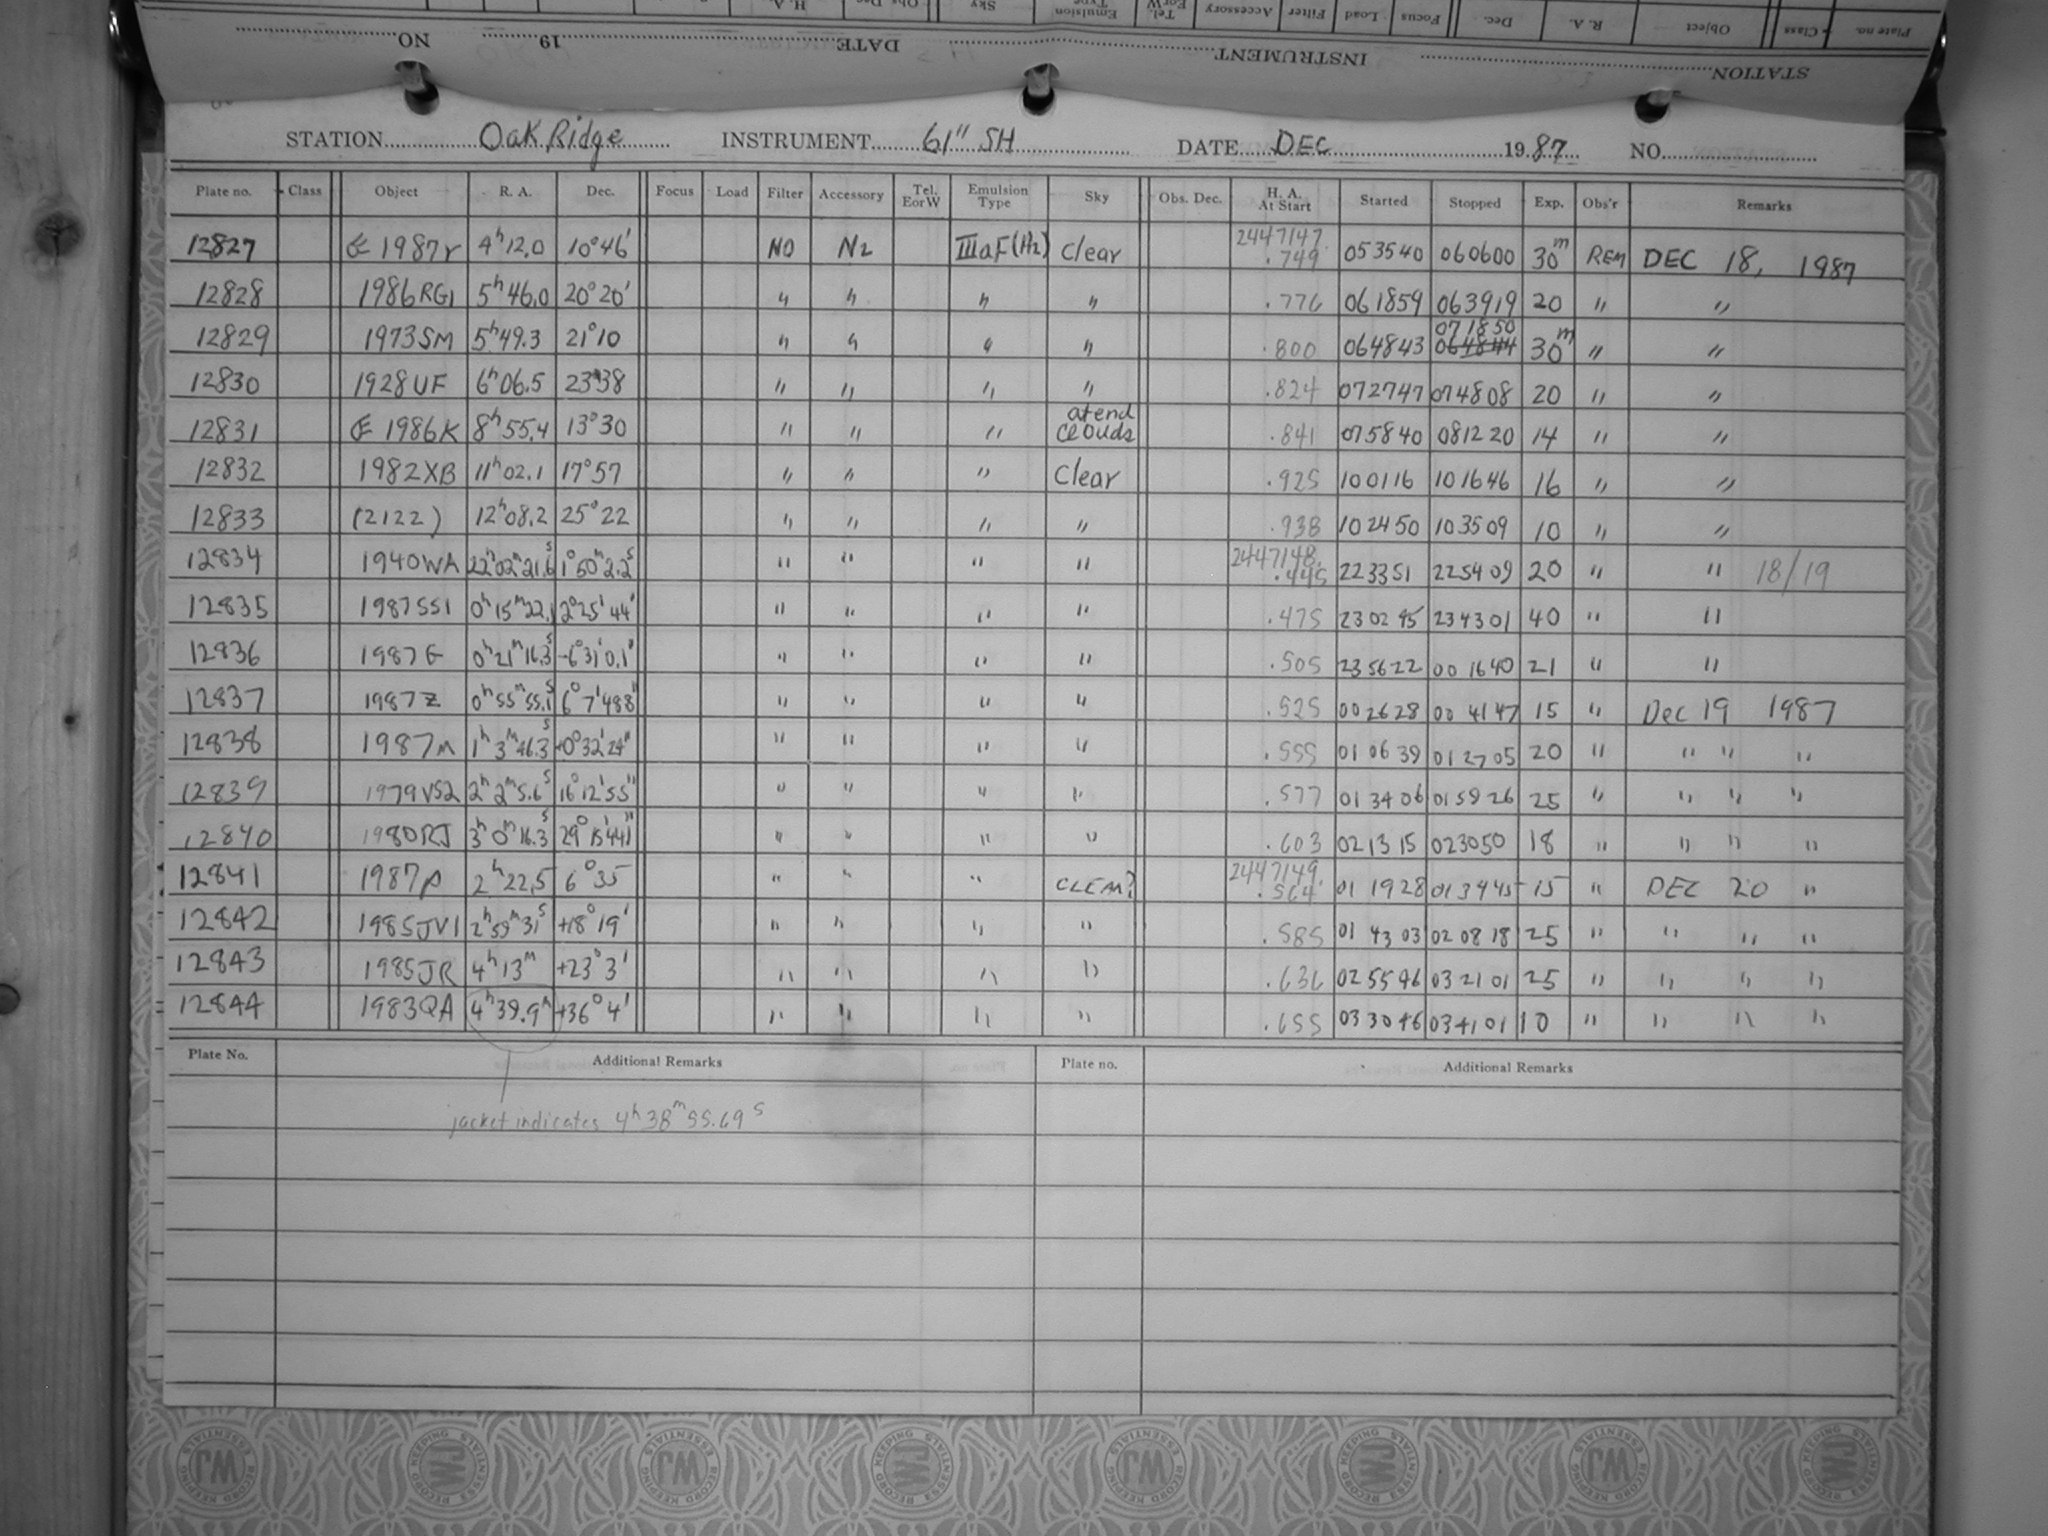 Plate no. Class Object R. A. Dec. Focus Load Filter Accessory Tel. EorW Emulsion Type Sky Obs. Dec. H. A.
STATION INSTRUMENT DATE 19 NO
STATION Oak Ridge INSTRUMENT 61" SH DATE DEC 1987 NO
Plate no. Class Object R. A. Dec. Focus Load Filter Accessory Tel. EorW Emulsion Type Sky Obs. Dec. H. A. At Start Started Stopped Exp. Obs'r Remarks
12827 1987r 4h12.0 10°46' NO N2 IIIaF(H2) Clear 2447147. .749 053540 060600 30m REM DEC 18, 1987
12828 1986RG1 5h46.0 20°20' " " " " .776 061859 063919 20 " "
12829 1973SM 5h49.3 21°10 " " " " .800 064843 071850 064844 30m " "
12830 1928UF 6h06.5 23°38 " " " " .824 072747 074808 20 " "
12831 1986K 8h55.4 13°30 " " " at end clouds .841 075840 081220 14 " "
12832 1982XB 11h02.1 17°57 " " " Clear .925 100116 101646 16 " "
12833 (2122) 12h08.2 25°22 " " " " .938 102450 103509 10 " "
12834 1940WA 22h02m21.6s 1°50m2.2s " " " " 2447148. .445 223351 225409 20 " " 18/19
12835 1987SS1 0h15m22.1 2°25'44" " " " " .475 230245 234301 40 " "
12836 1987G 0h21m16.3s -6°31'0.1" " " " " .505 235622 001640 21 " "
12837 1987Z 0h55m55.1s 6°7'48.8" " " " " .525 002628 004147 15 " Dec 19 1987
12838 1987M 1h3m46.3s +0°32'24" " " " " .555 010639 012705 20 " " " "
12839 1979VS2 2h2m5.6s 16°12'55" " " " " .577 013406 015926 25 " " " "
12840 1980RJ 3h0m16.3s 29°15'44.1" " " " " .603 021315 023050 18 " " " "
12841 1987P 2h22.5 6°35 " " " CLEAR? 2447149. .564 011928 013445 15 " DEC 20 "
12842 1985JV1 2h59m31s +18°19' " " " " .585 014303 020818 25 " " " "
12843 1985JR 4h13m +23°3' " " " " .636 025546 032101 25 " " " "
12844 1983QA 4h39.9m +36°4' " " " " .655 033046 034101 10 " " " "
Plate No. Additional Remarks Plate no. Additional Remarks
jacket indicates 4h38m55.69s
WJ RECORD KEEPING ESSENTIALS